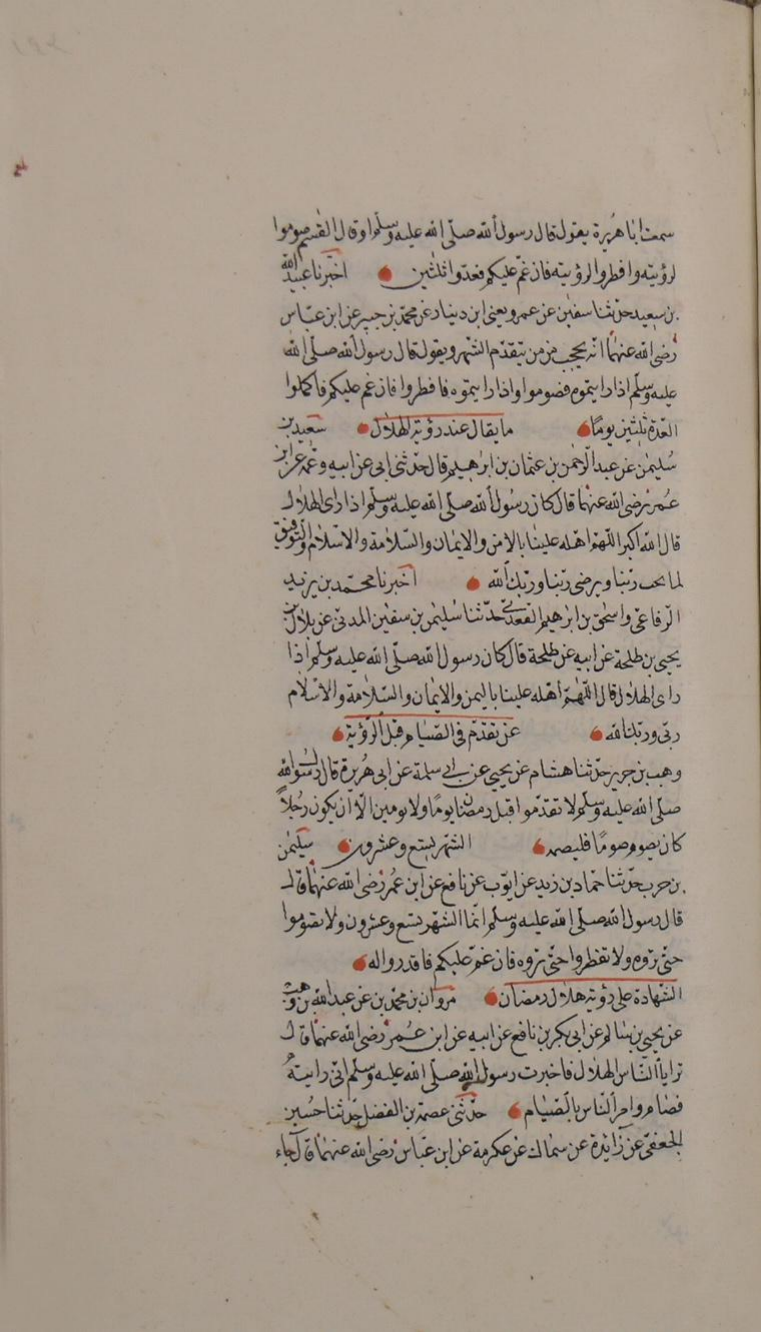 سمعت ابا هريرة يقول قال رسول الله صلى الله عليه وسلم او قال ابو القسم صوموا
لرؤيته وافطروا لرؤيته فان غم عليكم فعدوا ثلثين اخبرنا عبيد الله
بن سعيد حدثنا سفين عن عمرو يعني ابن دينار عن محمد بن جبير عن ابن عباس
رضى الله عنهما انه يعجب ممن يتقدم الشهر ويقول قال رسول الله صلى الله
عليه وسلم اذا رايتموه فصوموا واذا رايتموه فافطروا فان غم عليكم فاكملوا
العدة ثلثين يوما ما يقال عند رؤية الهلال سعيد بن
سليمن عن عبد الرحمن بن عثمان بن ابرهيم قال حدثنى ابى عن ابيه وعمه عن ابن
عمر رضى الله عنهما قال كان رسول الله صلى الله عليه وسلم اذا راى الهلال
قال الله اكبر اللهم اهله علينا بالامن والايمان والسلامة والاسلام والتوفيق
لما يحب ربنا ويرضى ربنا وربك الله اخبرنا محمد بن يزيد
الرفاعى واسحق بن ابرهيم العقدى حدثنا سليمن بن سفين المدنى عن بلال بن
يحيى بن طلحة عن ابيه عن طلحة قال كان رسول الله صلى الله عليه وسلم اذا
راى الهلال قال اللهم اهله علينا باليمن والايمان والسلامة والاسلام
ربى وربك الله عن تقدم فى الصيام قبل الرؤية
وهب بن جرير حدثنا هشام عن يحيى عن ابى سلمة عن ابى هريرة قال رسول الله
صلى الله عليه وسلم لا تقدموا قبل رمضان يوما ولا يومين الا ان يكون رجلا
كان يصوم صوما فليصمه الشهر تسع وعشرون سليمن
بن حرب حدثنا حماد بن زيد عن ايوب عن نافع عن ابن عمر رضى الله عنهما قال
قال رسول الله صلى الله عليه وسلم انما الشهر تسع وعشرون ولا تصوموا
حتى تروه ولا تفطروا حتى تروه فان غم عليكم فاقدروا له
الشهادة على رؤية هلال رمضان مروان بن محمد بن عن عبد الله بن وهب
عن يحيى بن سالم عن ابى بكر بن نافع عن ابيه عن ابن عمر رضى الله عنهما قال
ترايا الناس الهلال فاخبرت رسول الله صلى الله عليه وسلم انى رايته
فصام وامر الناس بالصيام حدثنى عصمة بن الفضل حدثنا حسين
الجعفى عن زايدة عن سماك عن عكرمة عن ابن عباس رضى الله عنهما قال جاء